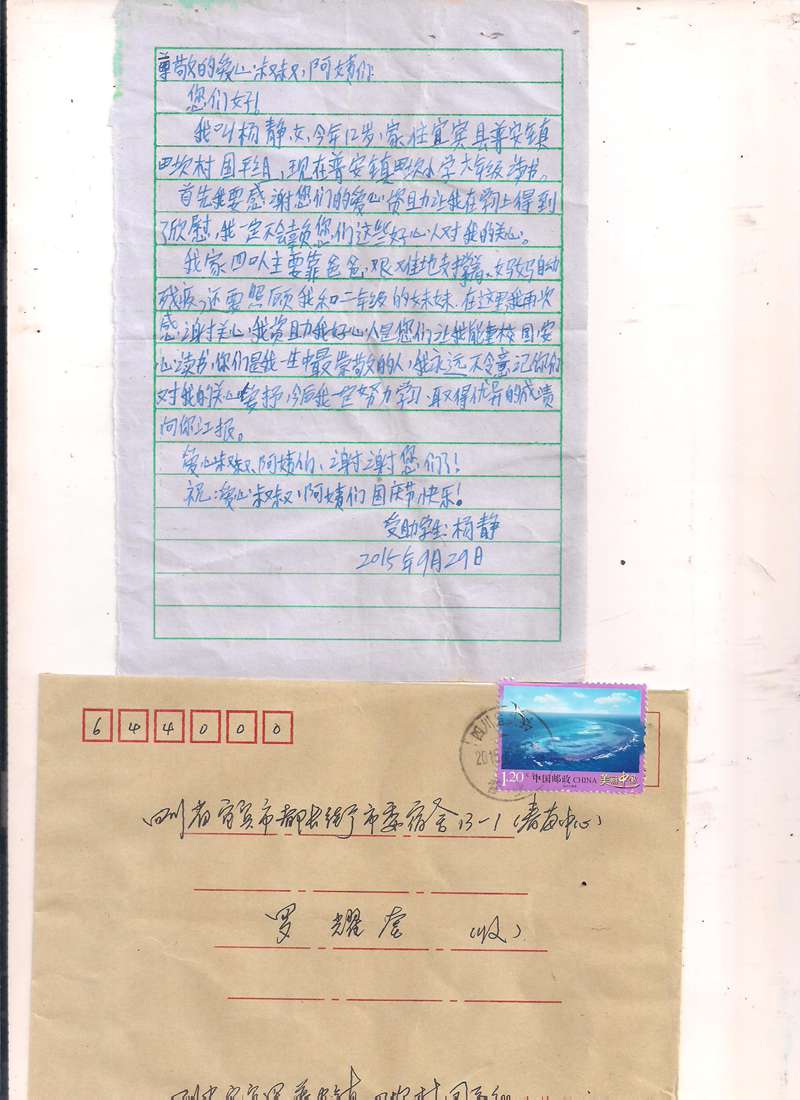 尊敬的爱心叔叔，阿姨们
您们好！
我叫杨静，女，今年12岁，家住宜宾县普安镇
四坎村国平组，现在普安镇四坎小学六年级读书。
首先我要感谢您们的爱心资助让我在学习上得到
了欣慰，我一定不会辜负您们这些好心人对我的关心。
我家四口人主要靠爸爸，艰难地支撑着，妈妈自动
残疾，还要照顾我和二年级的妹妹，在这里我再次
感谢关心，我资助我好心人是您们让我能重校园安
心读书，你们是我一生中最崇敬的人，我永远不会忘记你们
对我的关心，今后我一定努力学习，取得优异的成绩
向你汇报。
爱心叔叔，阿姨们，谢谢您们了！
祝：爱心叔叔，阿姨们国庆节快乐！
受助学生：杨静
2015年9月29日
644000
1.20元 中国邮政 CHINA 美丽中国
四川省宜宾市都长街市委宿舍13-1（青有中心）
罗耀 （收）
四川省宜宾县普安镇四坎村国平组